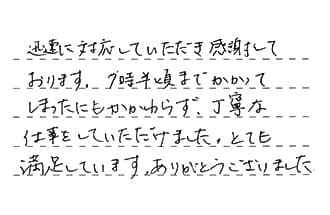 迅速に対応していただき感謝して
おります。9時半頃までかかって
しまったにもかかわらず、丁寧な
仕事をしていただけました。とても
満足しています。ありがとうございました